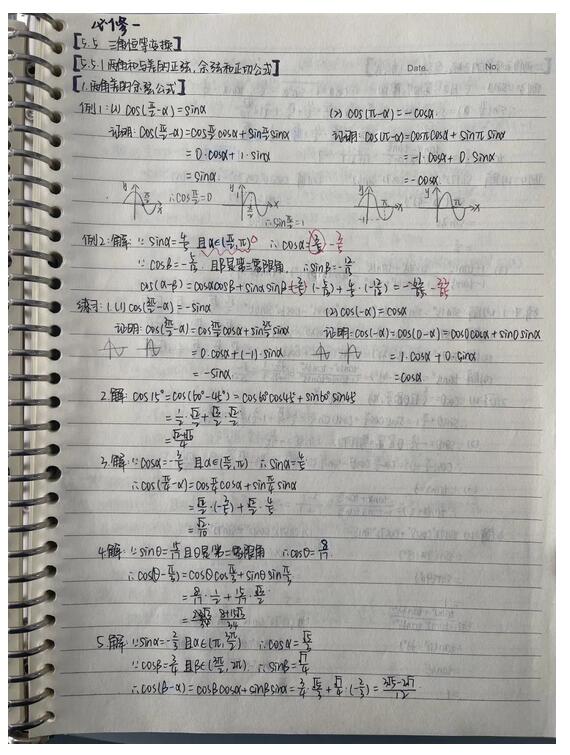 必修一
【5.5 三角恒等变换】
【5.5.1 两角和与差的正弦,余弦和正切公式】 Date. No.
【1.两角差的余弦公式】
例1:(1) cos(π/2-α)=sinα (2) cos(π-α)=-cosα
证明:cos(π/2-α)=cosπ/2cosα+sinπ/2sinα 证明:cos(π-α)=cosπcosα+sinπsinα
=0·cosα+1·sinα =-1·cosα+0·sinα
=sinα =-cosα
y π/2 x ∴cosπ/2=0 y 1 π/2 x ∴sinπ/2=1 y π x -1 y π x
例2:解:∵sinα=4/5 且α∈(π/2,π) ∴cosα=3/5 -3/5
∵cosβ=-5/13 且β是第三象限角 ∴sinβ=-12/13
cos(α-β)=cosαcosβ+sinαsinβ=(-3/5)·(-5/13)+4/5·(-12/13)= -33/65
练习:1.(1) cos(3π/2-α)=-sinα (2) cos(-α)=cosα
证明:cos(3π/2-α)=cos3π/2cosα+sin3π/2sinα 证明:cos(-α)=cos(0-α)=cos0cosα+sin0sinα
=0·cosα+(-1)·sinα =1·cosα+0·sinα
=-sinα =cosα
2.解:cos15°=cos(60°-45°)=cos60°cos45°+sin60°sin45°
=1/2·√2/2+√3/2·√2/2
=√2+√6/4
3.解:∵cosα=-3/5 且α∈(π/2,π) ∴sinα=4/5
∴cos(π/4-α)=cosπ/4cosα+sinπ/4sinα
=√2/2·(-3/5)+√2/2·4/5
=√2/10
4.解:∵sinθ=15/17且θ是第二象限角 ∴cosθ=8/17
∴cos(θ-π/3)=cosθcosπ/3+sinθsinπ/3
=8/17·1/2+15/17·√3/2
= 8+15√3/34
5.解:∵sinα=-2/3 且α∈(π,3π/2) ∴cosα=√5/3
∵cosβ=3/4 且β∈(3π/2,2π) ∴sinβ=√7/4
∴cos(β-α)=cosβcosα+sinβsinα=3/4·√5/3+√7/4·(-2/3)=3√5-2√7/12